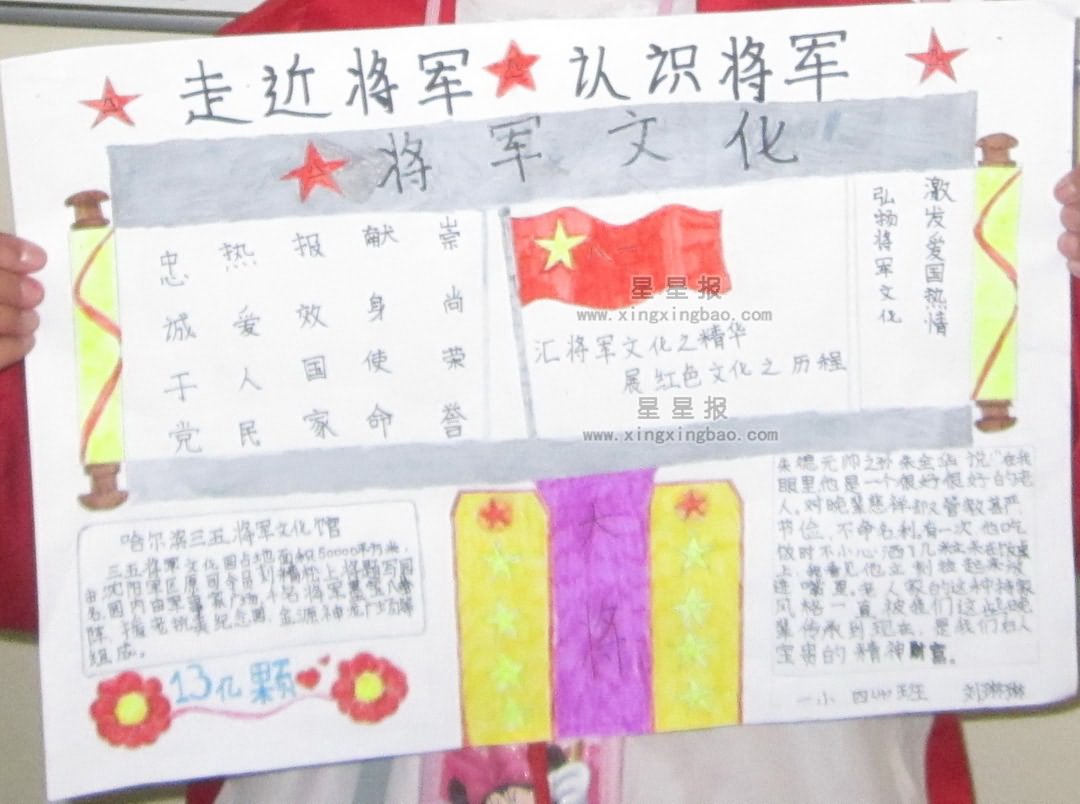 走近将军 认识将军
将军文化
忠诚于党
热爱人民
报效国家
献身使命
崇尚荣誉
八一
星星报
www.xingxingbao.com
汇将军文化之精华
展红色文化之历程
星星报
www.xingxingbao.com
激发爱国热情
弘扬将军文化
哈尔滨三五将军文化馆
三五将军文化园占地面积50000平方米,
由沈阳军区原司令员刘精松上将题写园
名。园内由军事
陈 纪念园、金源神龙广场等
组成。
13亿颗
大将
朱德元帅之孙朱全华说:"在我
眼里他是一个很好很好的老
人。对晚辈慈祥却又管教甚严
节俭,不命名利。有一次他吃
饭时不小心洒了几粒米在饭桌
上,我看见他立刻捡起来放
进嘴里。老人家的这种持家
风格一直被我们这些晚
辈传承到现在,是我们家人
宝贵的精神财富。
一小 四 班 刘琳琳